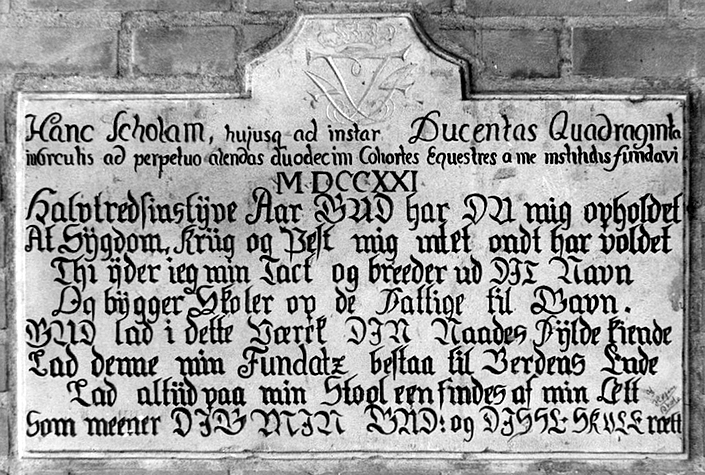 Hanc Scholam, hujusq ad instar Ducentas Quadraginta
in circulis ad perpetuo alendas duodecim Cohortes Equestres a me institutis fundavi
MDCCXXI
Halvtredsinstÿve Aar GUD har DU mig opholdet
At Sÿgdom, Krüg og Pest mig intet ondt har voldet
Thi ÿder ieg min Tact og breeder ud DIT Navn
Og bÿgger Skoler op de Fattige til Gavn.
GUD lad i dette Værck DIN Naades Fÿlde kiende
Lad denne min Fundatz bestaa til Verdens Ende
Lad altiid paa min Stool een findes af min Ætt
Som meener DIG MIN GUD: og DISSE SKOLE rætt